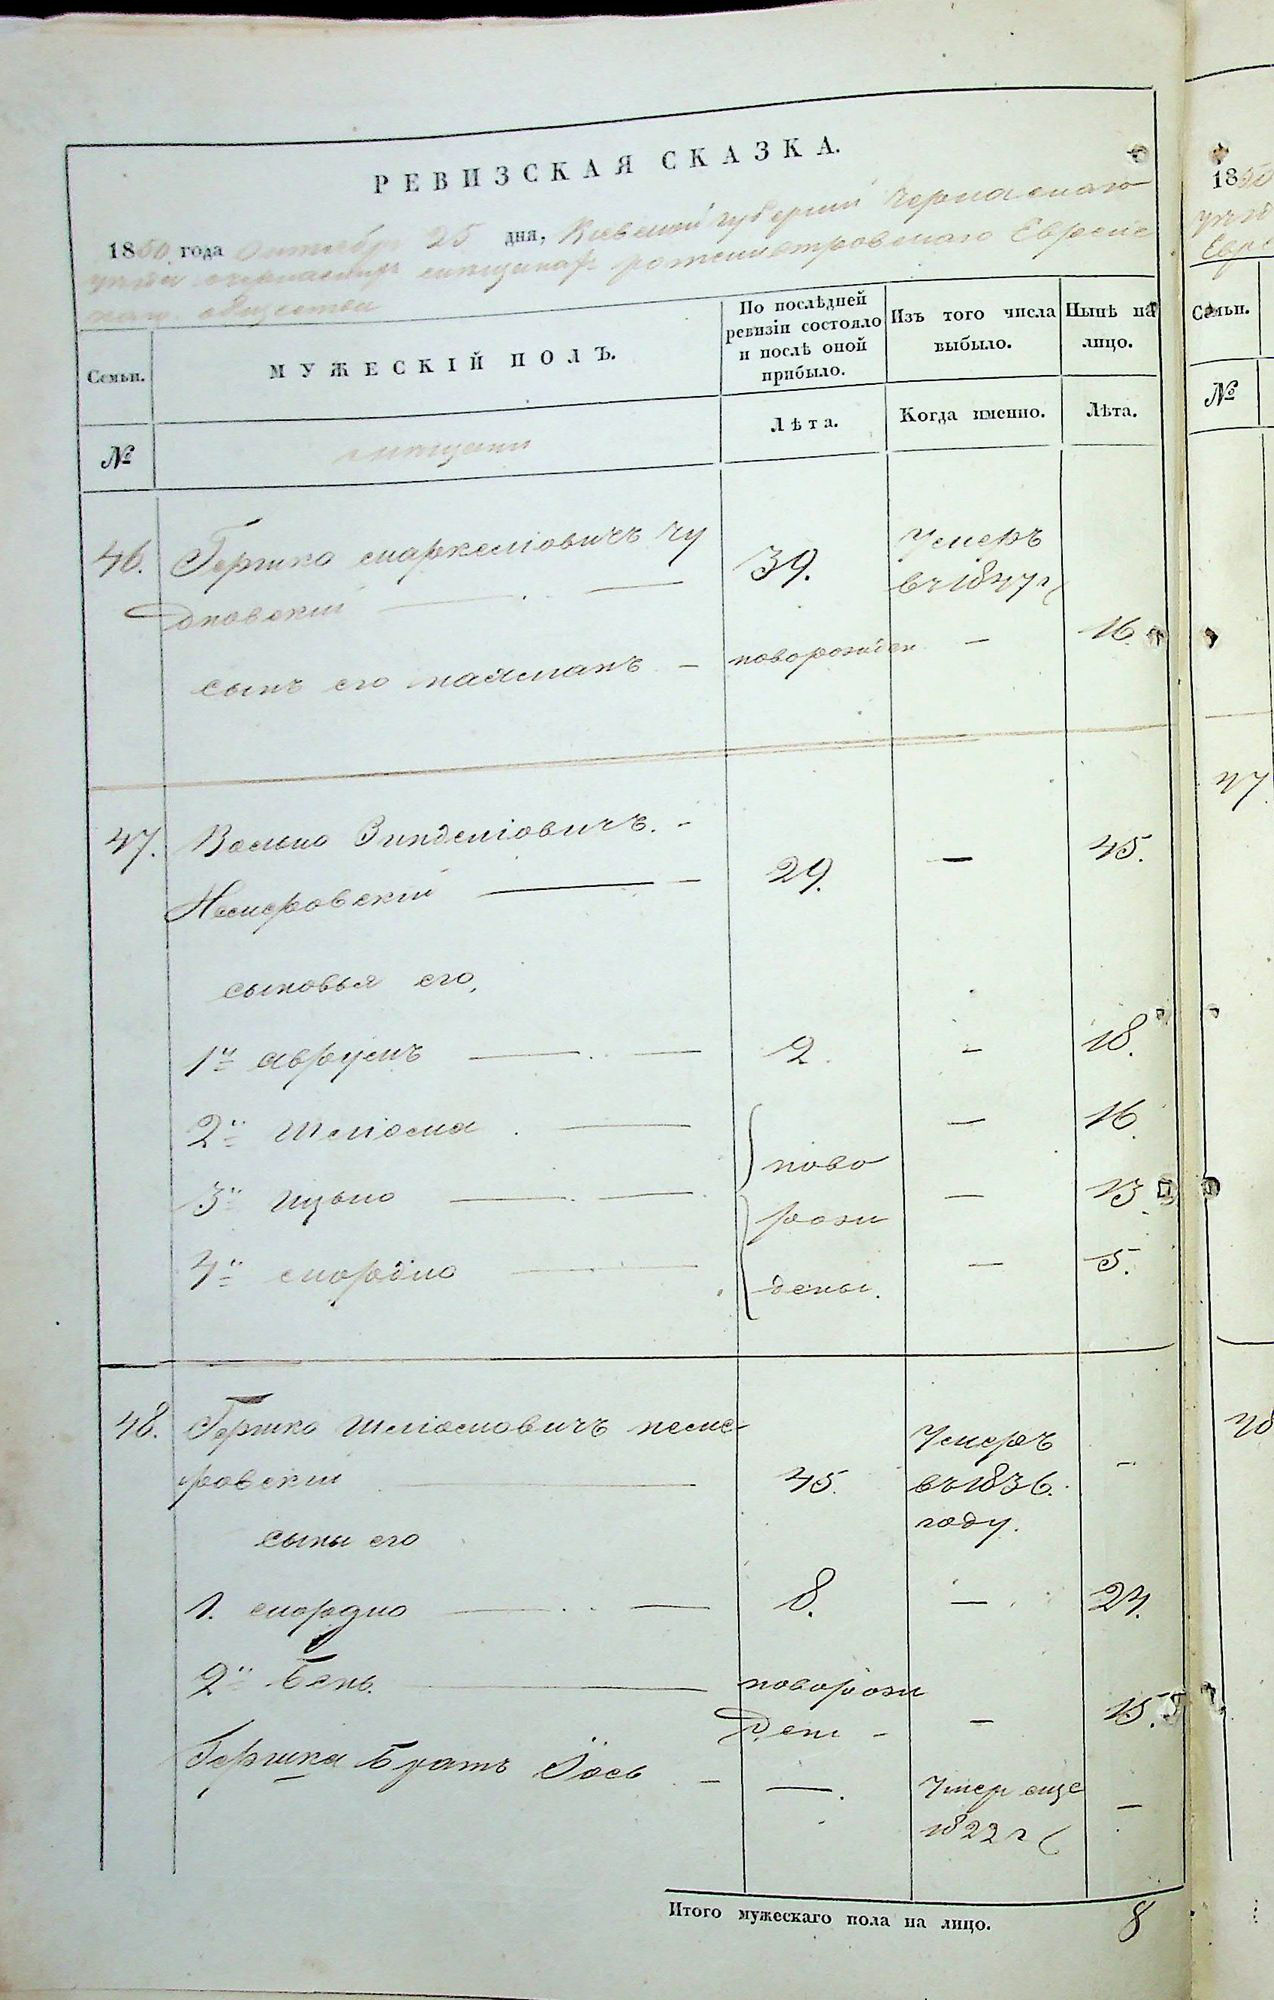 РЕВИЗСКАЯ СКАЗКА.
1850 года Октября 25 дня, Киевской губернии Черкаскаго
уезда мещинахъ ротмистровскаго Еврейс
каго общества
Семьи.
МУЖЕСКІЙ ПОЛЪ.
По послѣдней
ревизіи состояло
и послѣ оной
прибыло.
Изъ того числа
выбыло.
Нынѣ на
лицо.
№
мещани
Лѣта.
Когда именно.
Лѣта.
46. Гершко Мархеліовичъ Чу
дновскій
39.
Умеръ
въ 1847 г
сынъ его Нахманъ
новорожден
16
47. Волько Зинделіовичъ
Немеровскій
29.
45.
сыновья его,
1й Аврумъ 2 18.
2й Шліома 16.
3й Ицько 13.
4й Мордко 5.
ново
рож
дены.
48. Гершко Шліомовичъ Неме
ровскій
45.
Умеръ
въ 1836.
году.
сыны его
1. Мордко 8. 24.
2й Бень.
новорож
ден
15.
Гершка Братъ Іось
Умер еще
1822 г
Итого мужескаго пола на лицо. 8
1850
Семьи.
№
47
48